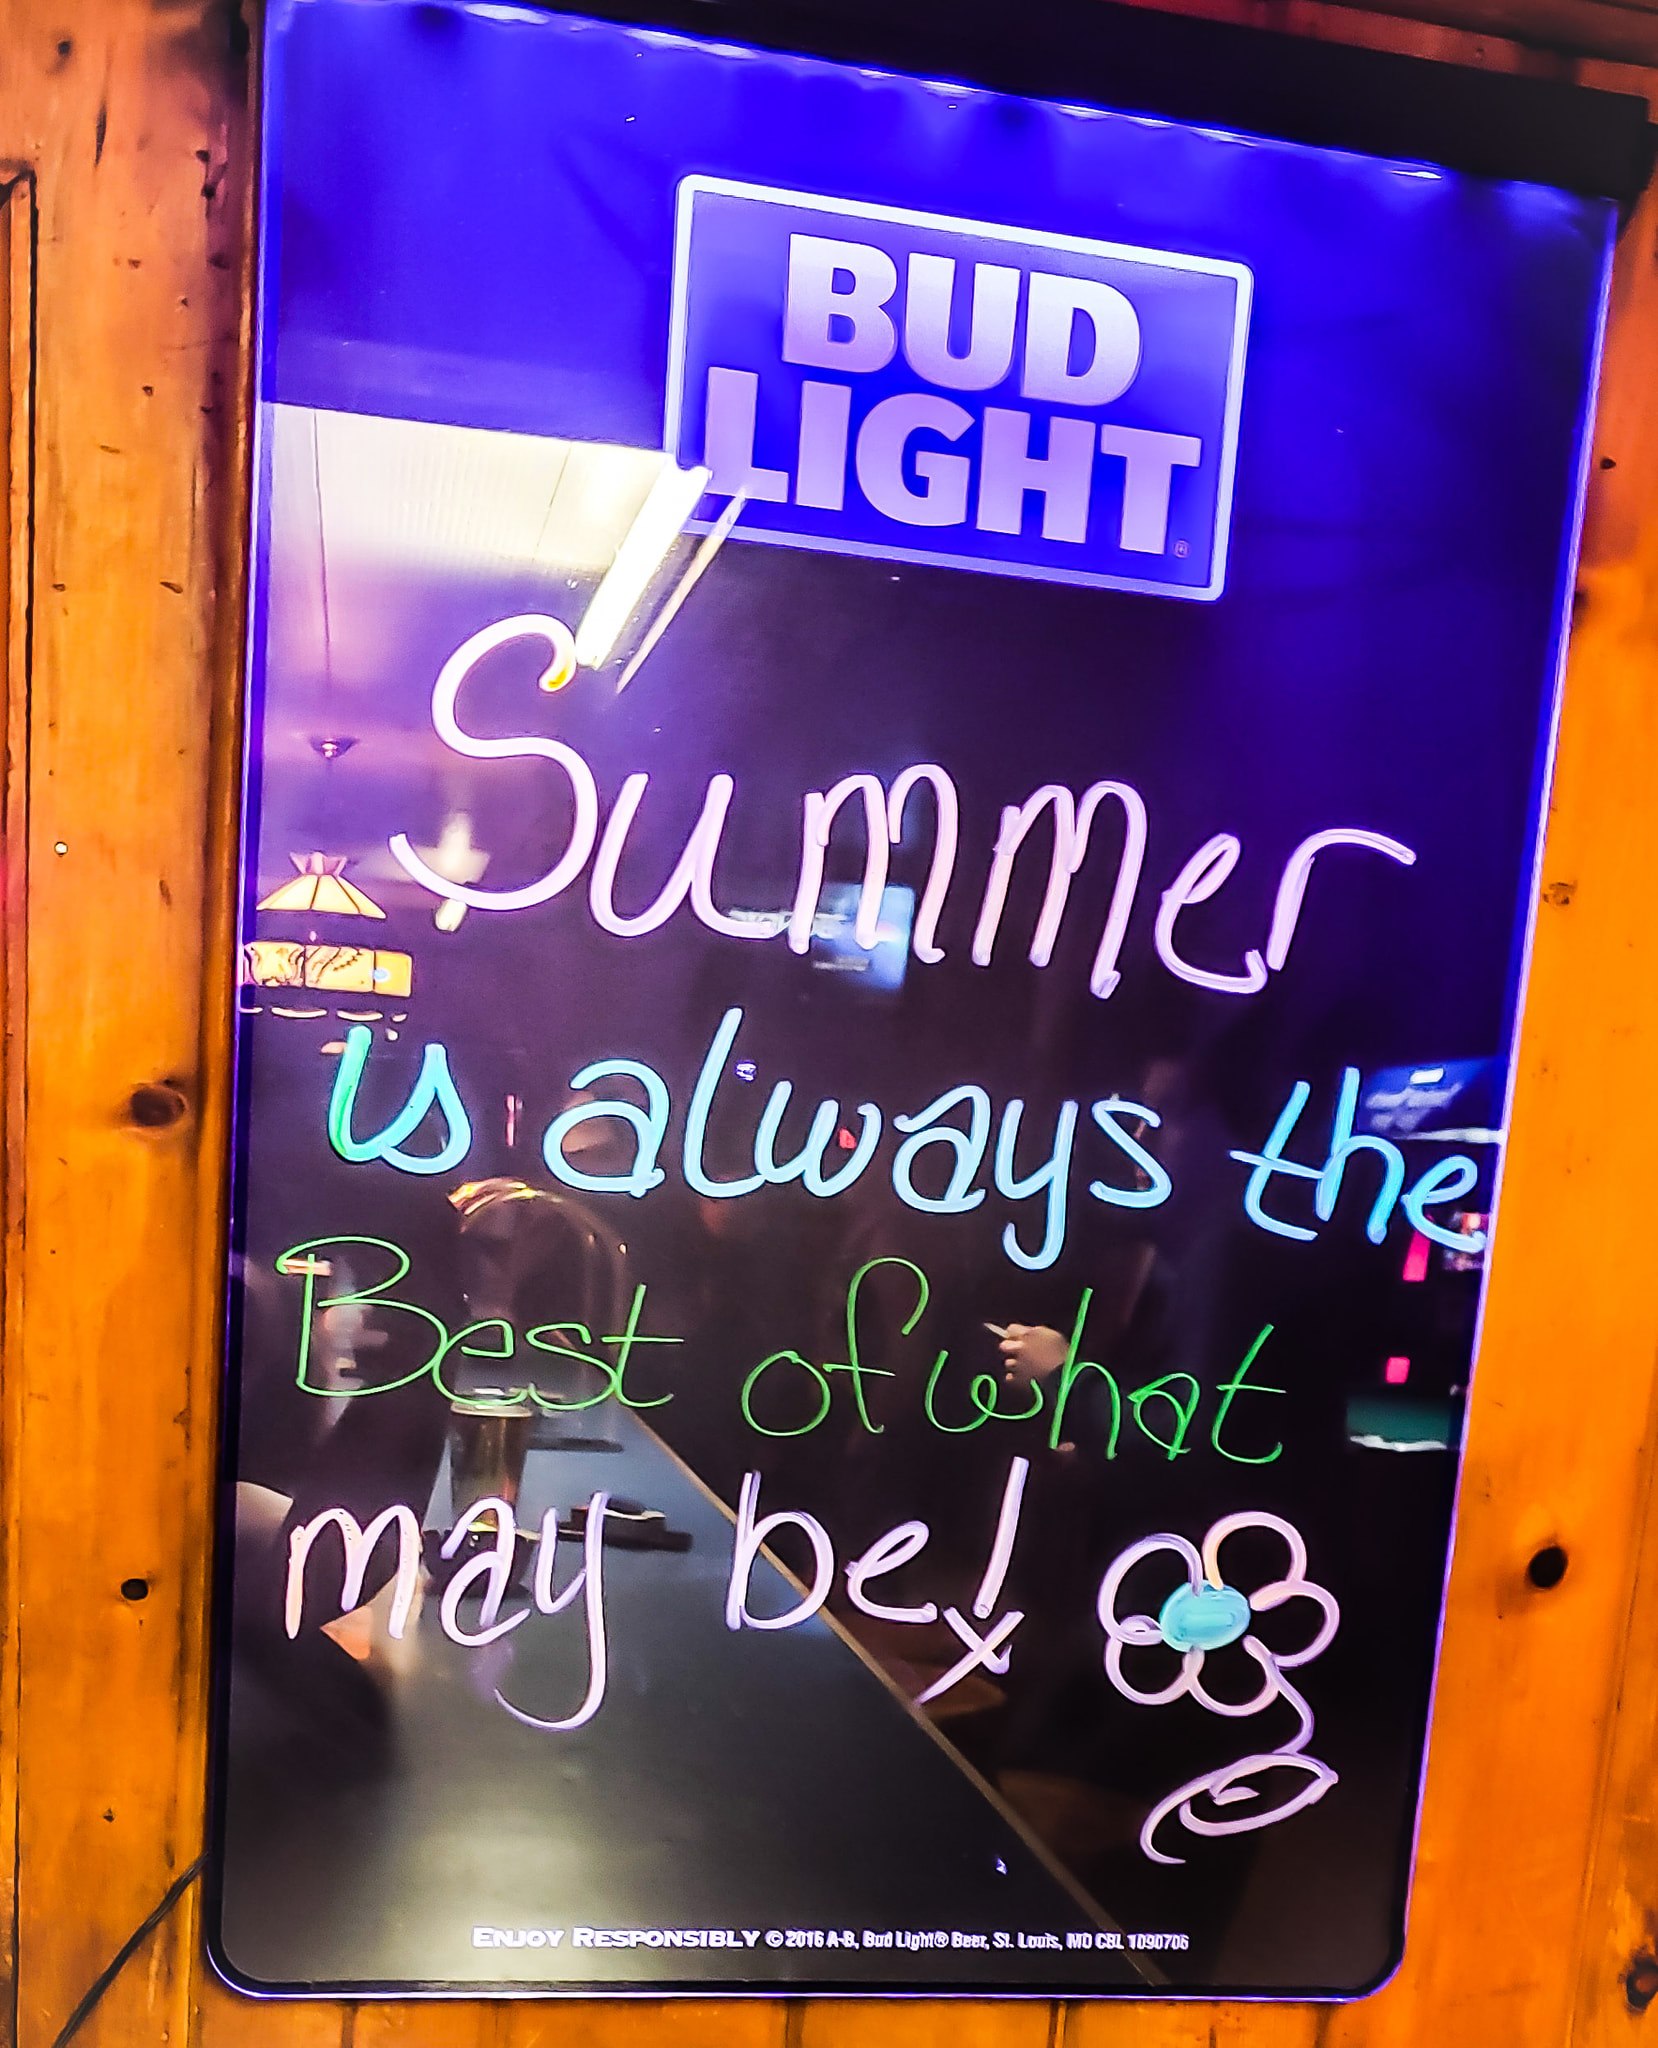 BUD
LIGHT®
Summer
is always the
Best of what
may be!
ENJOY RESPONSIBLY © 2016 A-B, Bud Light® Beer, St. Louis, MO CBL 1090706